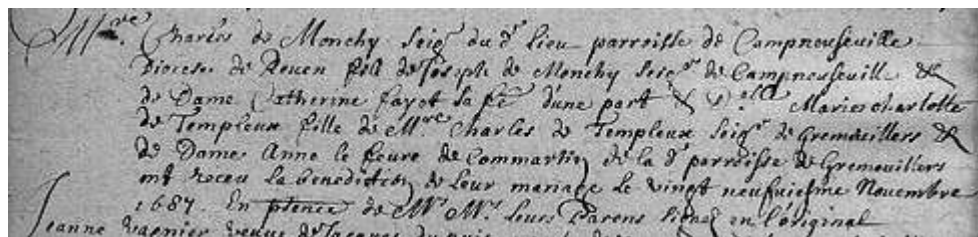 Mre. Charles de Monchy Seigr du dt lieu parroisse de Campneuseville
Diocese de Rouen fils de Joseph de Monchy Seigr de Campneuseville &
de Dame Catherine fayot sa fe d'une part & Delle Marie charlotte
de Templeux fille de Mre Charles de Templeux Seigr de Gremevillers &
de Dame Anne le feure de Commartin de la dt parroisse de Gremevillers
ont receu la benediction de leur mariage le vingt neufuiesme Nouembre
1687. En pñence de Mrs Mrs leurs Parens signez en l'original
Jeanne veuue de Jacques